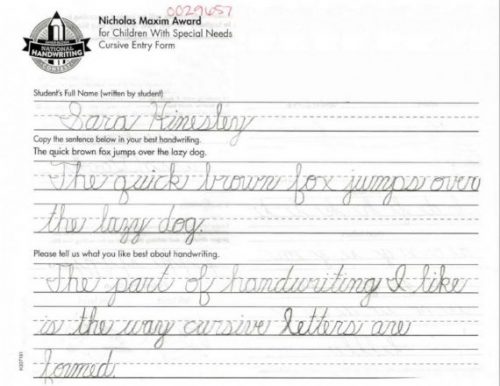 0029657
Nicholas Maxim Award
for Children With Special Needs
Cursive Entry Form
NATIONAL
HANDWRITING
CONTEST
Student's Full Name (written by student)
Sara Hinesley
Copy the sentence below in your best handwriting.
The quick brown fox jumps over the lazy dog.
The quick brown fox jumps over
the lazy dog.
Please tell us what you like best about handwriting.
The part of handwriting I like
is the way cursive letters are
formed.